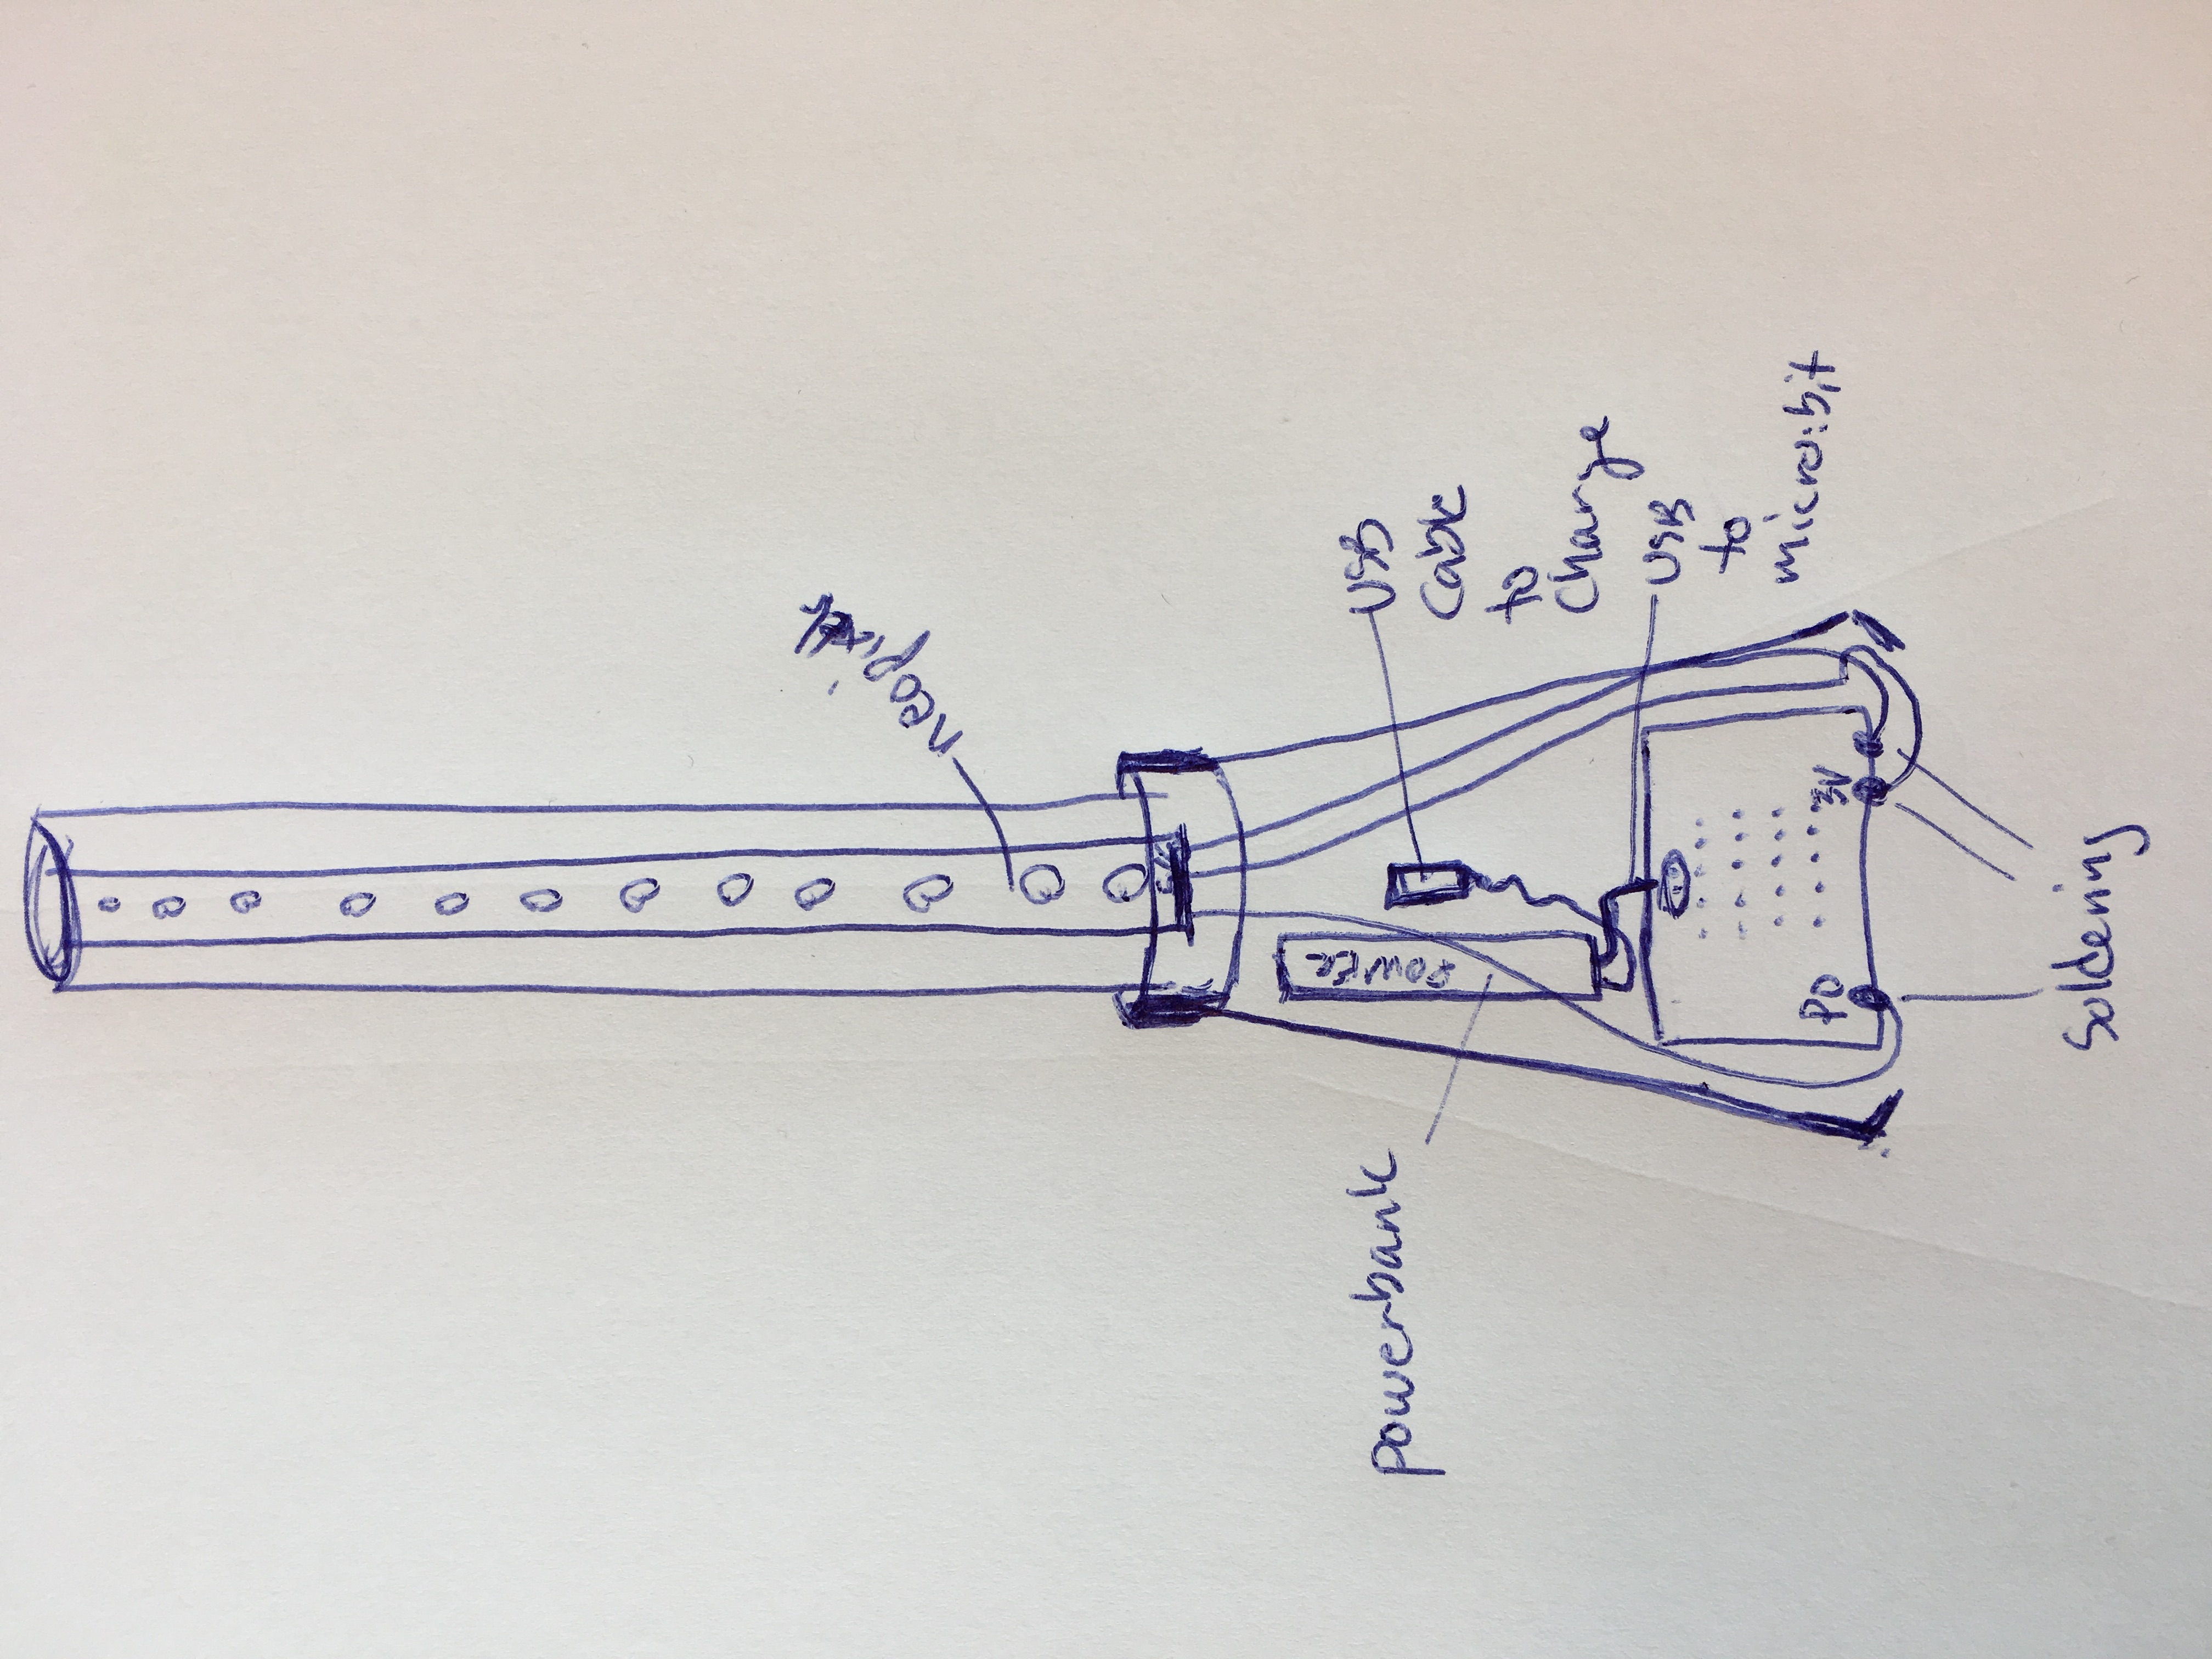 neopixels
POWER
powerbank
USB
Cable
to
Charge
USB
to
micro:bit
P0
3V
Soldering